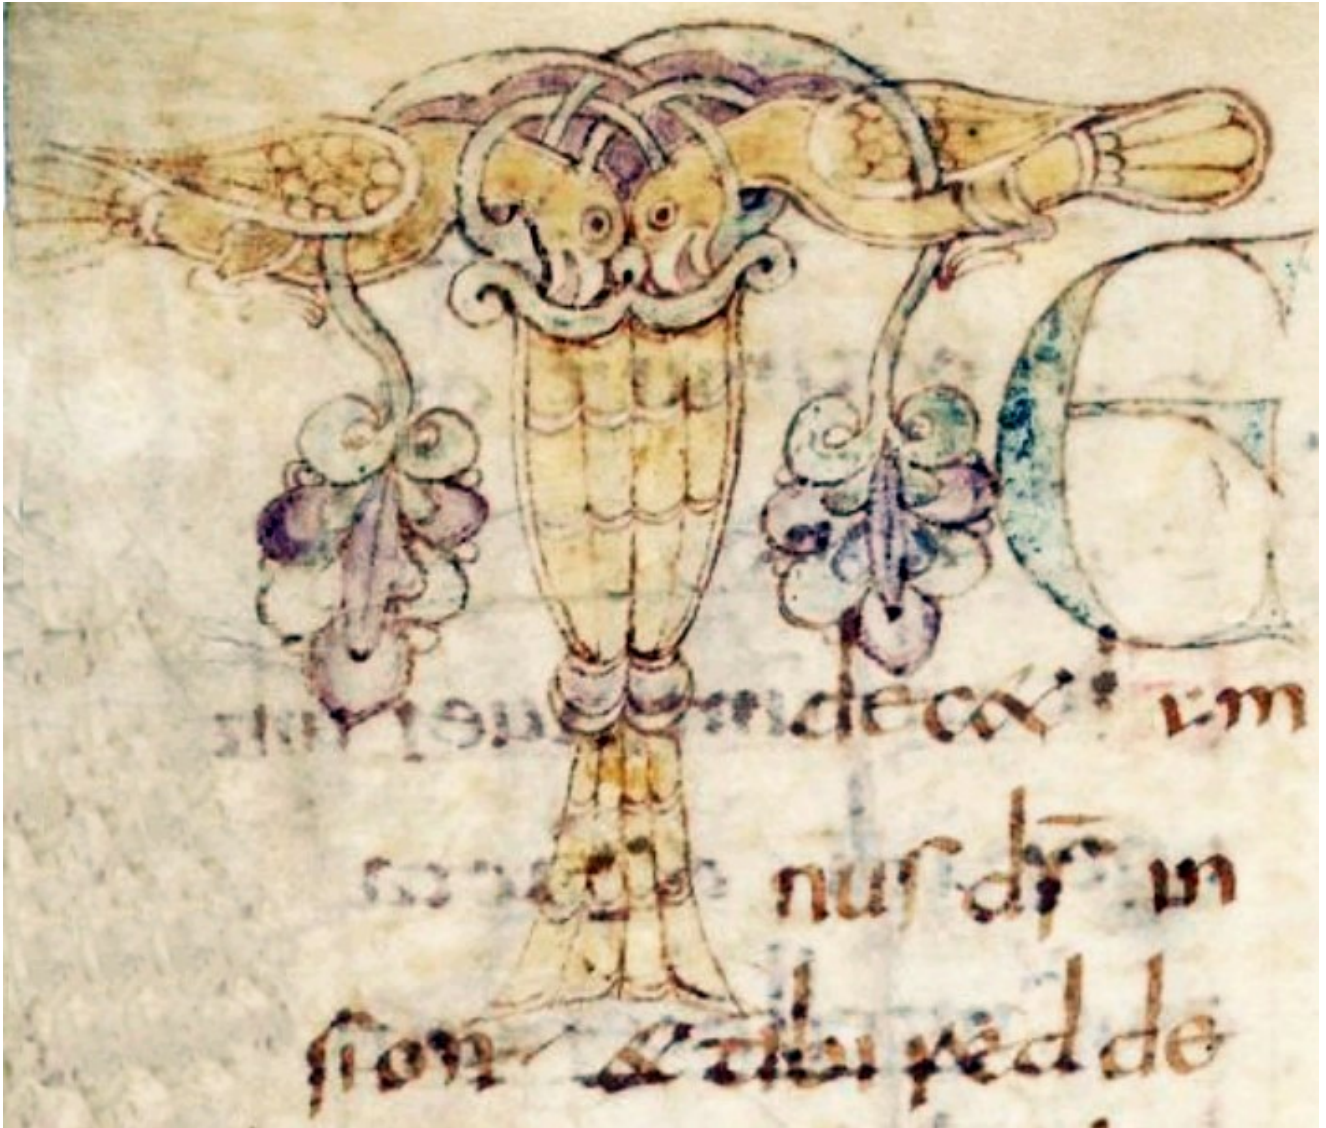 TE
dec& ym
nuſ dſ̄ in
ſion & tibi redde